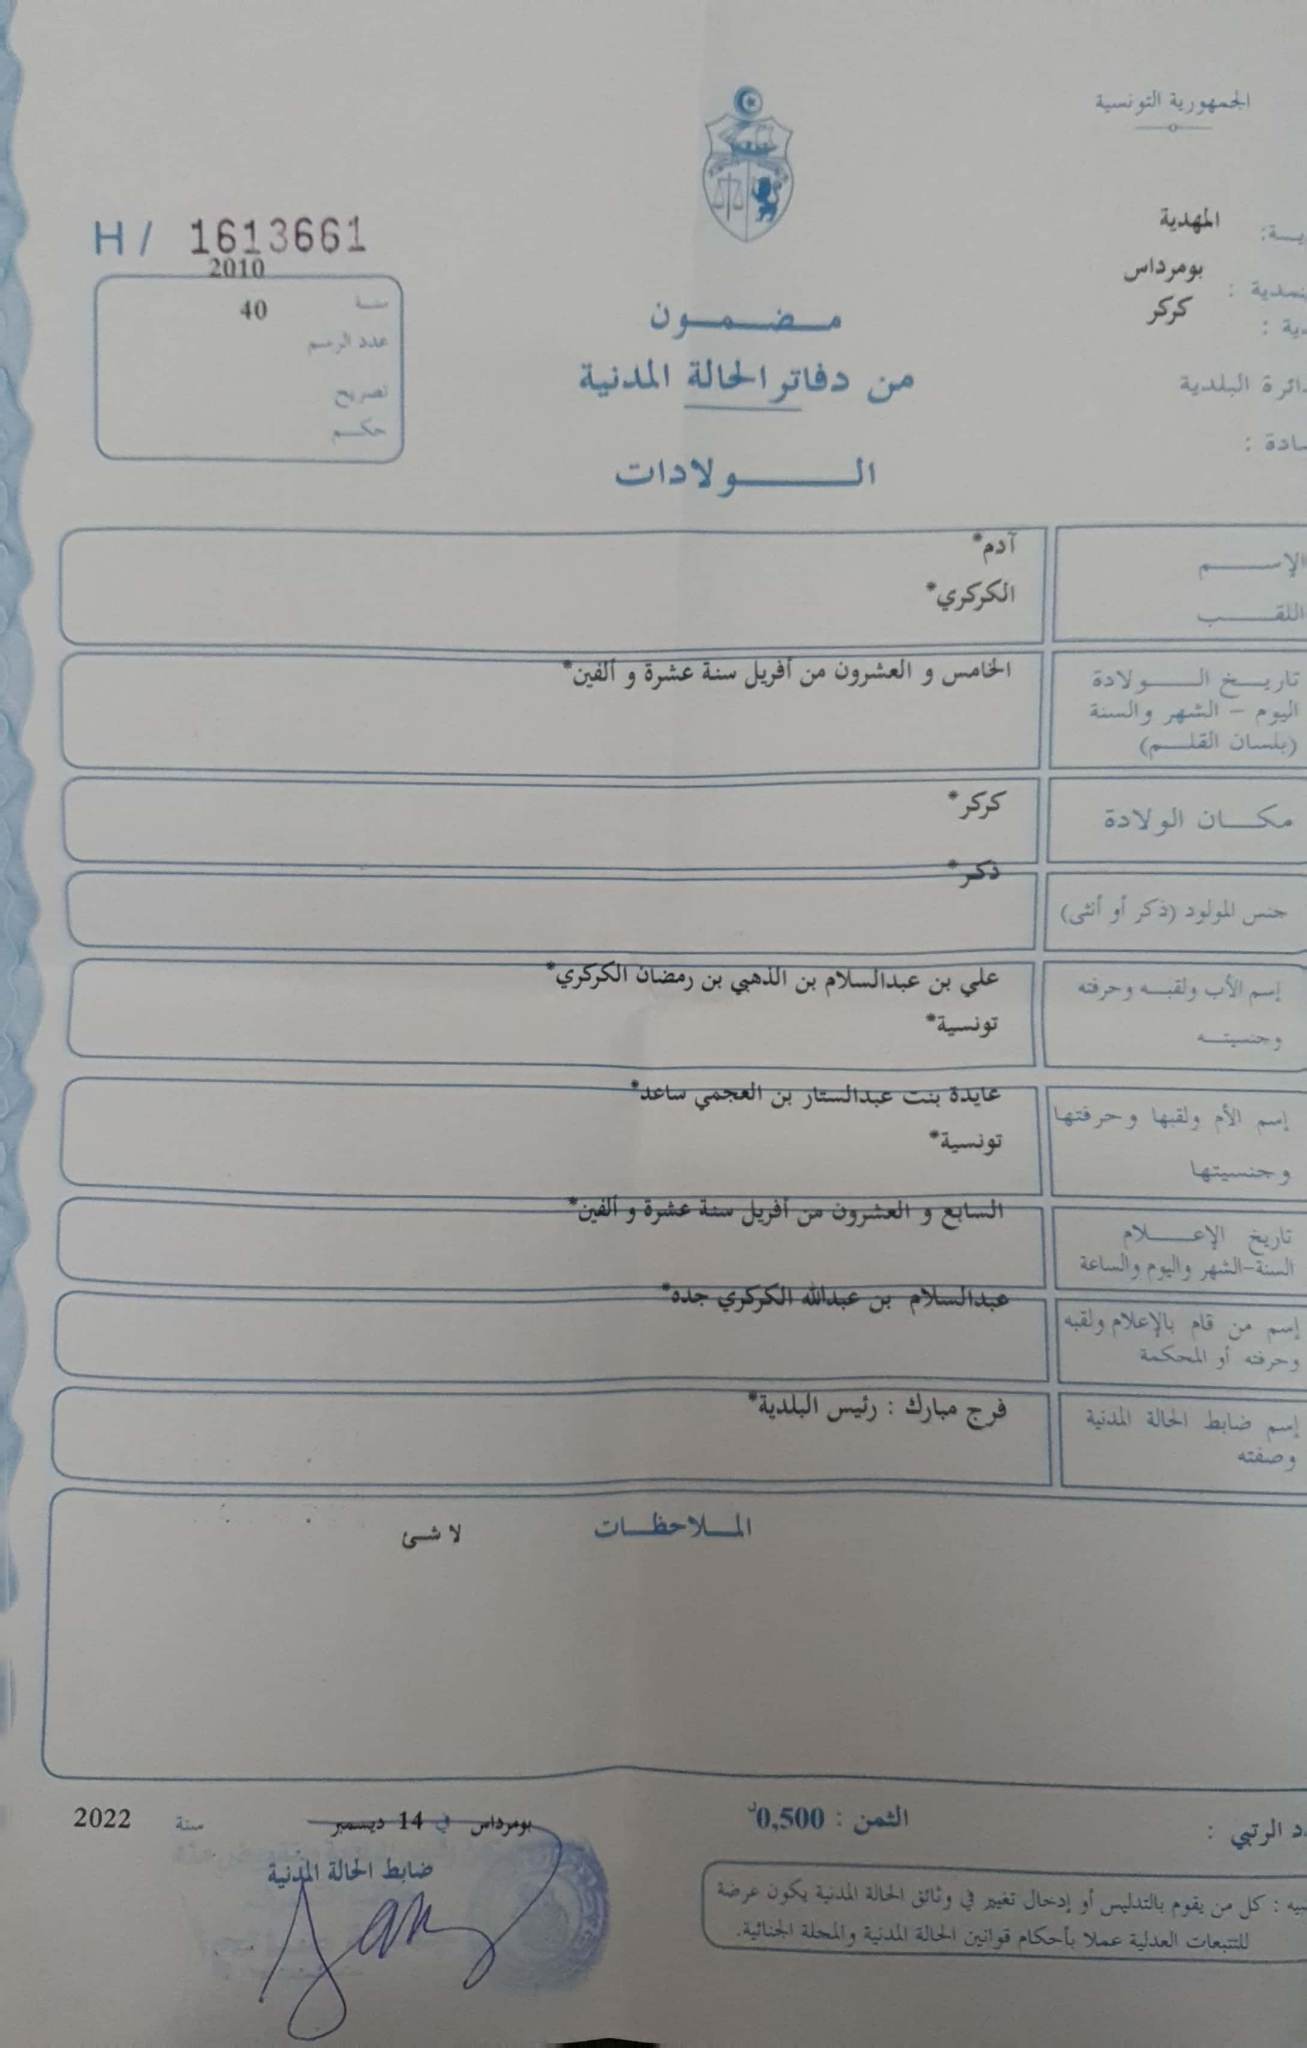 الجمهورية التونسية
المهدية
بومرداس
كركر
H / 1613661
2010
سنة
40
عدد الرسم
تصريح
حكم
مضمون
من دفاتر الحالة المدنية
الولادات
الإسم
آدم*
اللقب
الكركري*
تاريخ الولادة
اليوم - الشهر والسنة
(بلسان القلم)
الخامس و العشرون من أفريل سنة عشرة و ألفين*
مكان الولادة
كركر*
جنس المولود (ذكر أو أنثى)
ذكر*
إسم الأب ولقبه وحرفته
وجنسيته
علي بن عبدالسلام بن الذهبي بن رمضان الكركري*
تونسية*
إسم الأم ولقبها وحرفتها
وجنسيتها
عايدة بنت عبدالستار بن العجمي ساعد*
تونسية*
تاريخ الإعلام
السنة-الشهر واليوم والساعة
السابع و العشرون من أفريل سنة عشرة و ألفين*
إسم من قام بالإعلام ولقبه
وحرفته أو المحكمة
عبدالسلام بن عبدالله الكركري جده*
إسم ضابط الحالة المدنية
وصفته
فرج مبارك : رئيس البلدية*
الملاحظات
لا شئ
الرتبي :
الثمن : 0,500د
بومرداس في 14 ديسمبر سنة 2022
ضابط الحالة المدنية
: كل من يقوم بالتدليس أو إدخال تغيير في وثائق الحالة المدنية يكون عرضة
للتتبعات العدلية عملا بأحكام قوانين الحالة المدنية والمجلة الجنائية.